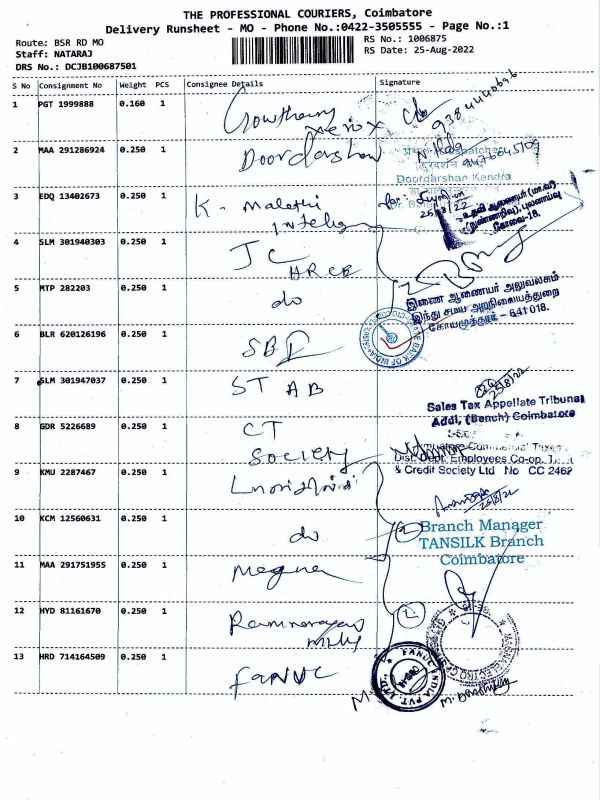 THE PROFESSIONAL COURIERS, Coimbatore
Delivery Runsheet - MO - Phone No.:0422-3505555 - Page No.:1
Route: BSR RD MO
RS No.: 1006875
Staff: NATARAJ
RS Date: 25-Aug-2022
DRS No.: DCJB100687501
S No Consignment No Weight PCS Consignee Details Signature
1 PGT 1999888 0.160 1 Gowtham
Xerox
2 MAA 291286924 0.250 1 Doordarshan
Doordarshan Kendra
3 EDQ 13402673 0.250 1 K. Malathi
25/8/22
கோவை-18.
4 SLM 301940303 0.250 1 JC
HRCE
5 MTP 282203 0.250 1 do
இணை ஆணையர் அலுவலகம்
இந்து சமய அறநிலையத்துறை
கோயமுத்தூர் - 641 018.
6 BLR 620126196 0.250 1 SBI
7 SLM 301947037 0.250 1 STAB
25/8/22
Sales Tax Appellate Tribunal
Addl. (Bench) Coimbatore
8 GDR 5226689 0.250 1 CT
Society
Coimbatore Commercial Taxes
Dist. Dept. Employees Co-op.
& Credit Society Ltd No CC 2462
9 KMU 2287467 0.250 1
10 KCM 12560631 0.250 1 do
2
Branch Manager
TANSILK Branch
Coimbatore
11 MAA 291751955 0.250 1 Magna
12 HYD 81161670 0.250 1 Ramnarayan
Mills
2
13 HRD 714164509 0.250 1 FANUC
FANUC INDIA PVT. LTD.